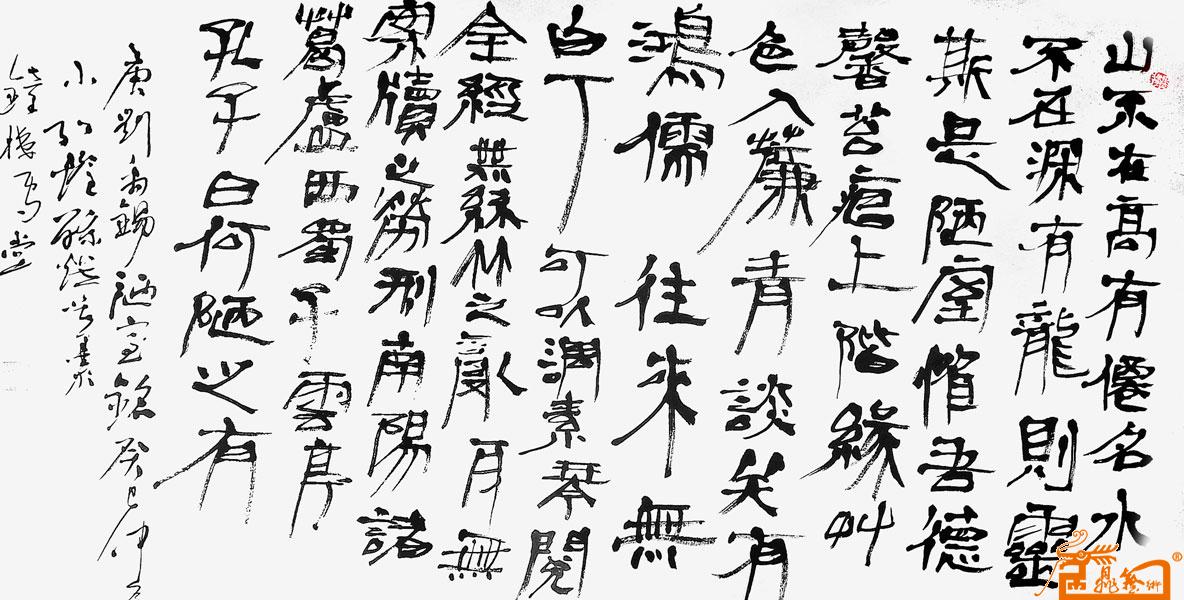 山不在高有僊名水
不在深有龍則靈
斯是陋室惟吾德
馨苔痕上階緑艸
色入簾青談笑有
鴻儒往來無
白丁可以調素琴閱
金經無絲竹之亂耳無
案牘之勞形南陽諸
葛廬西蜀子雲亭
孔子曰何陋之有
唐劉禹錫陋室銘癸巳仲